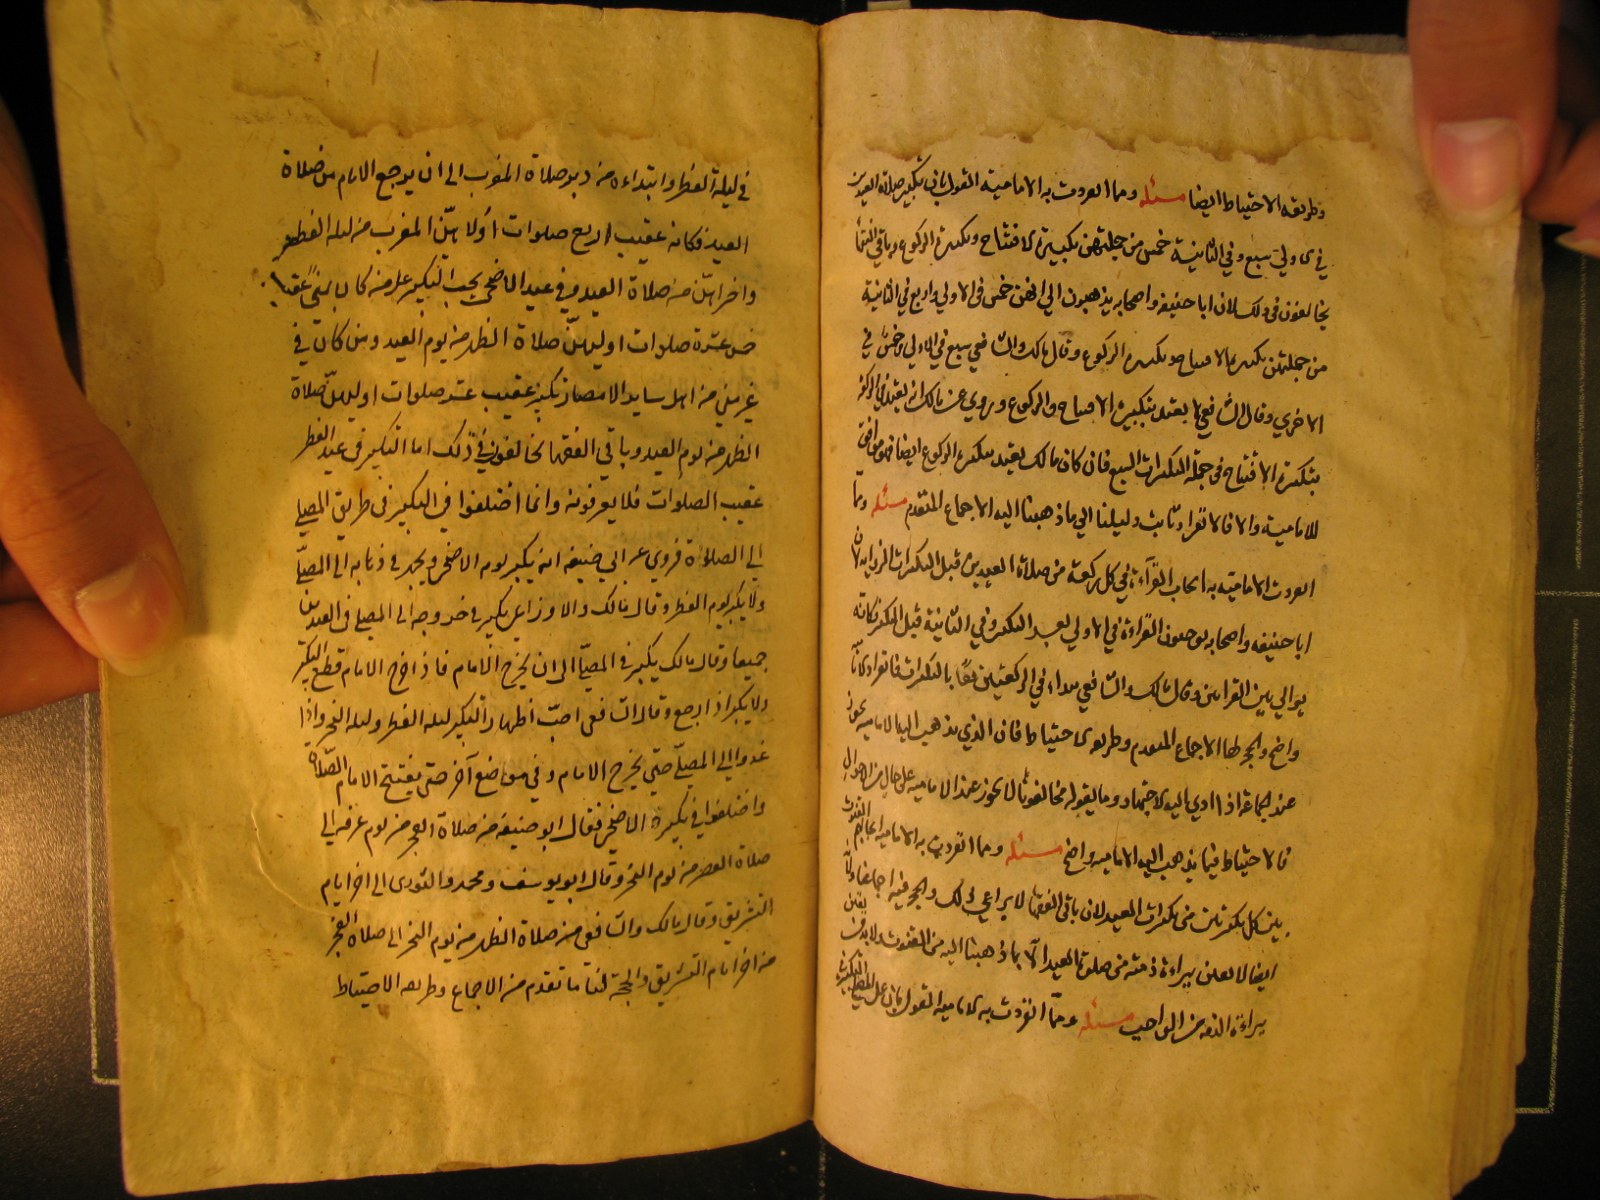 وطريقه الاحتياط ايضا مسئله ومما انفردت به الامامية القول بان تكبير صلاة العيدين
في الاولي سبع وفي الثانية خمس من جملتهن تكبيرة الافتتاح وتكبيرة الركوع وباقي الفقها
يخالفون في ذلك لان ابا حنيفه واصحابه يذهبون الي انهن خمس في الاولي واربع في الثانية
من جملتهن تكبيرة الافتتاح وتكبيرة الركوع وقال مالك والشافعي سبع في الاولي وخمس في
الاخري وقال الشافعي لا يعتد بتكبيرة الافتتاح والركوع وروي عن مالك انه يعتد
بتكبيرة الافتتاح في جملة التكبيرات السبع فان كان مالك يعتد بتكبيرة الركوع ايضا فهو موافق
للامامية والا فالانفراد ثابت دليلنا الي ما ذهبنا اليه الاجماع المتقدم مسئله ومما
انفردت الامامية به ايجاب القرآءة في كل ركعة من صلاة العيدين قبل التكبيرات الزوايد لان
ابا حنيفه واصحابه يوجبون القراءة في الاولي بعد التكبير وفي الثانية قبل التكبير فكانه
يوالي بين القراءتين وقال مالك والشافعي يبداء في الركعتين معًا بالتكبيرات فانفرادنا
واضح والحجة لنا الاجماع المتقدم وطريق الاحتياط فان الذي يذهب اليه الامامية يجوز
عند الجماعة اذا ادي اليه الاجتهاد وما يقوله مخالفونا لا يجوز عند الامامية علي حال من الاحوال
فالاحتياط فيما يذهب اليه الامامية واضح مسئله ومما انفردت به الامامية ايجابهم القنوت
بين كل تكبرتين من تكبرات العيد لان باقي الفقها لا يراعي ذلك والحجة فيه اجماعنا ولانّه
ايضا لا يعلن ببراءة ذمته من صلوة العيد الا بما ذهبنا اليه من القنوت ولابد من يقين
براءة الذمه من الواجب مسئله وممّا انفردت به الامامية القول بان علي المصلي التكبير
في ليلة الفطر وابتداءه من دبر صلاة المغرب الي ان يرجع الامام من صلاة
العيد فكانه عقيب اربع صلوات أولاهنّ المغرب من ليله الفطر
واخراهنّ من صلاة العيد وفي عيد الاضحي يجب التكبير علي من كان بمني عقيب
خمس عشرة صلوات اوليهنّ صلاة الظهر من يوم العيد ومن كان في
غير مني من اهل ساير الامصار تكبيرة عقيب عشر صلوات اوليهنّ صلاة
الظهر من يوم العيد وباقي الفقها يخالفون في ذلك اما التكبير في عيد الفطر
عقيب الصلوات فلا يعرفونه وانما اختلفوا في التكبير في طريق المصلي
الي الصلوة فروي عن ابي حنيفه انه يكبر يوم الاضحي ويجهر في ذهابه الي المصلّي
ولا يكبر يوم الفطر وقال مالك والاوزاعي يكبر في خروجه الي المصلي في العيدين
جميعا وقال مالك يكبر في المصلّا الي ان يخرج الامام فاذ اخرج الامام قطع التكبير
ولا يكبر اذ ارجع وقال الشافعي احبّ اظهار التكبير ليله الفطر وليله النحر واذا
غدوا الي المصلّي حتي يخرج الامام وفي مواضع آخر حتي يفتتح الامام الصّلاة
واختلفوا في تكبيرة الاضحي فقال ابو حنيفه من صلاة الفجر من يوم عرفه الي
صلاة العصر من يوم النحر وقال ابو يوسف ومحمد والثوري الي اخر ايام
التشريق وقال مالك والشافعي من صلاة الظهر من يوم النحر الي صلاة الفجر
من اخر ايام التشريق والحجة لنا ما تقدم من الاجماع وطريقه الاحتياط